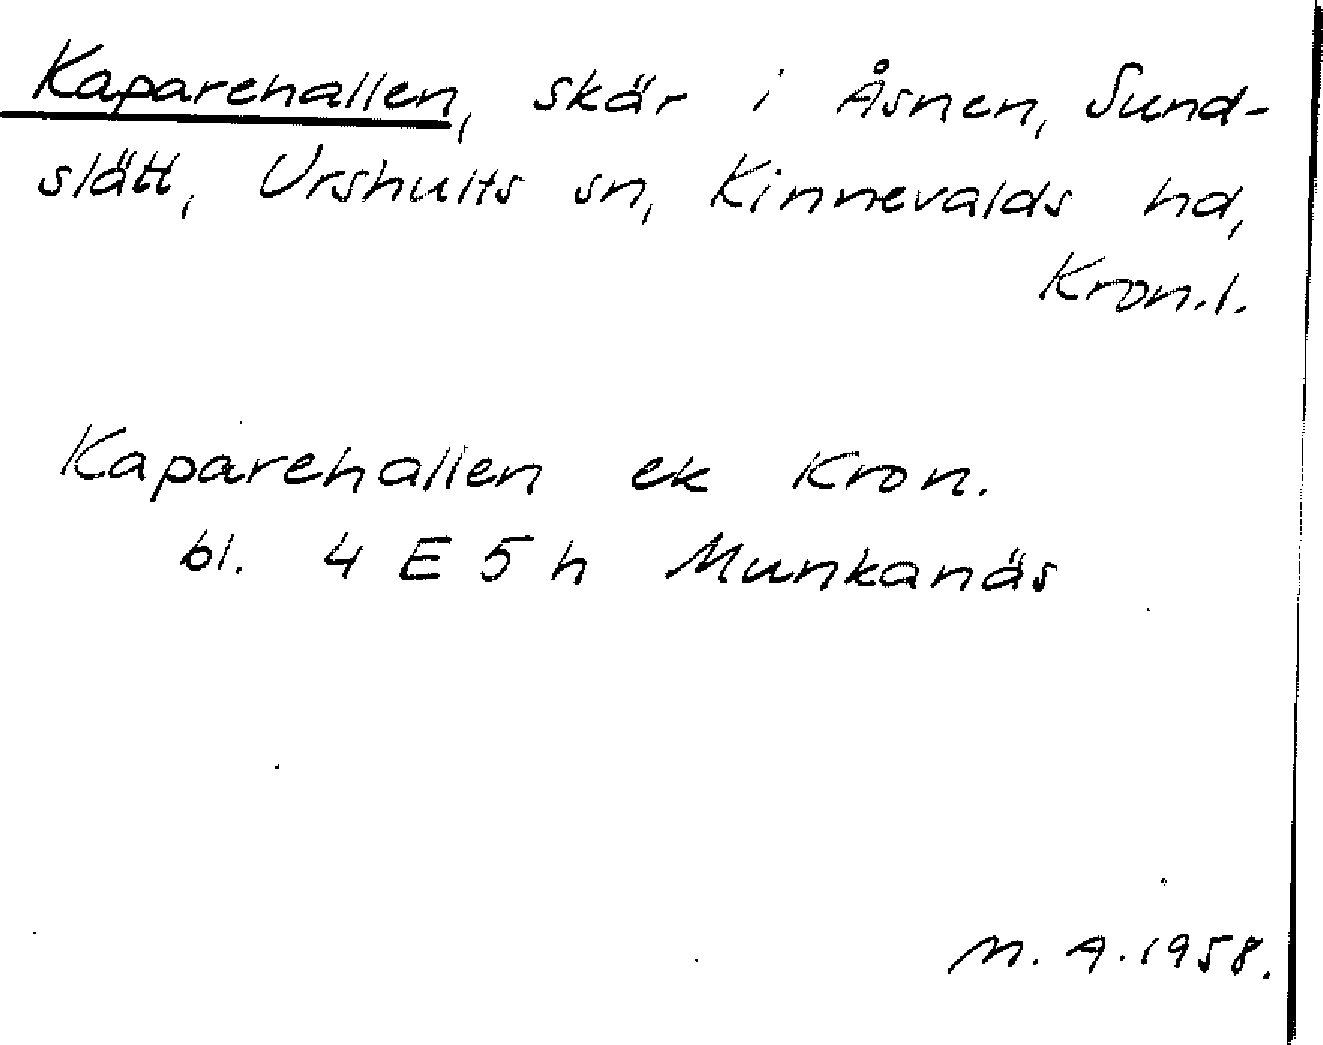 Kaparehallen, skär i Åsnen, Sund-
slätt, Urshults sn, Kinnevalds hd,
Kron.l.
Kaparehallen ek Kron.
bl. 4 E 5 h Munkanäs
M. A. 1958.